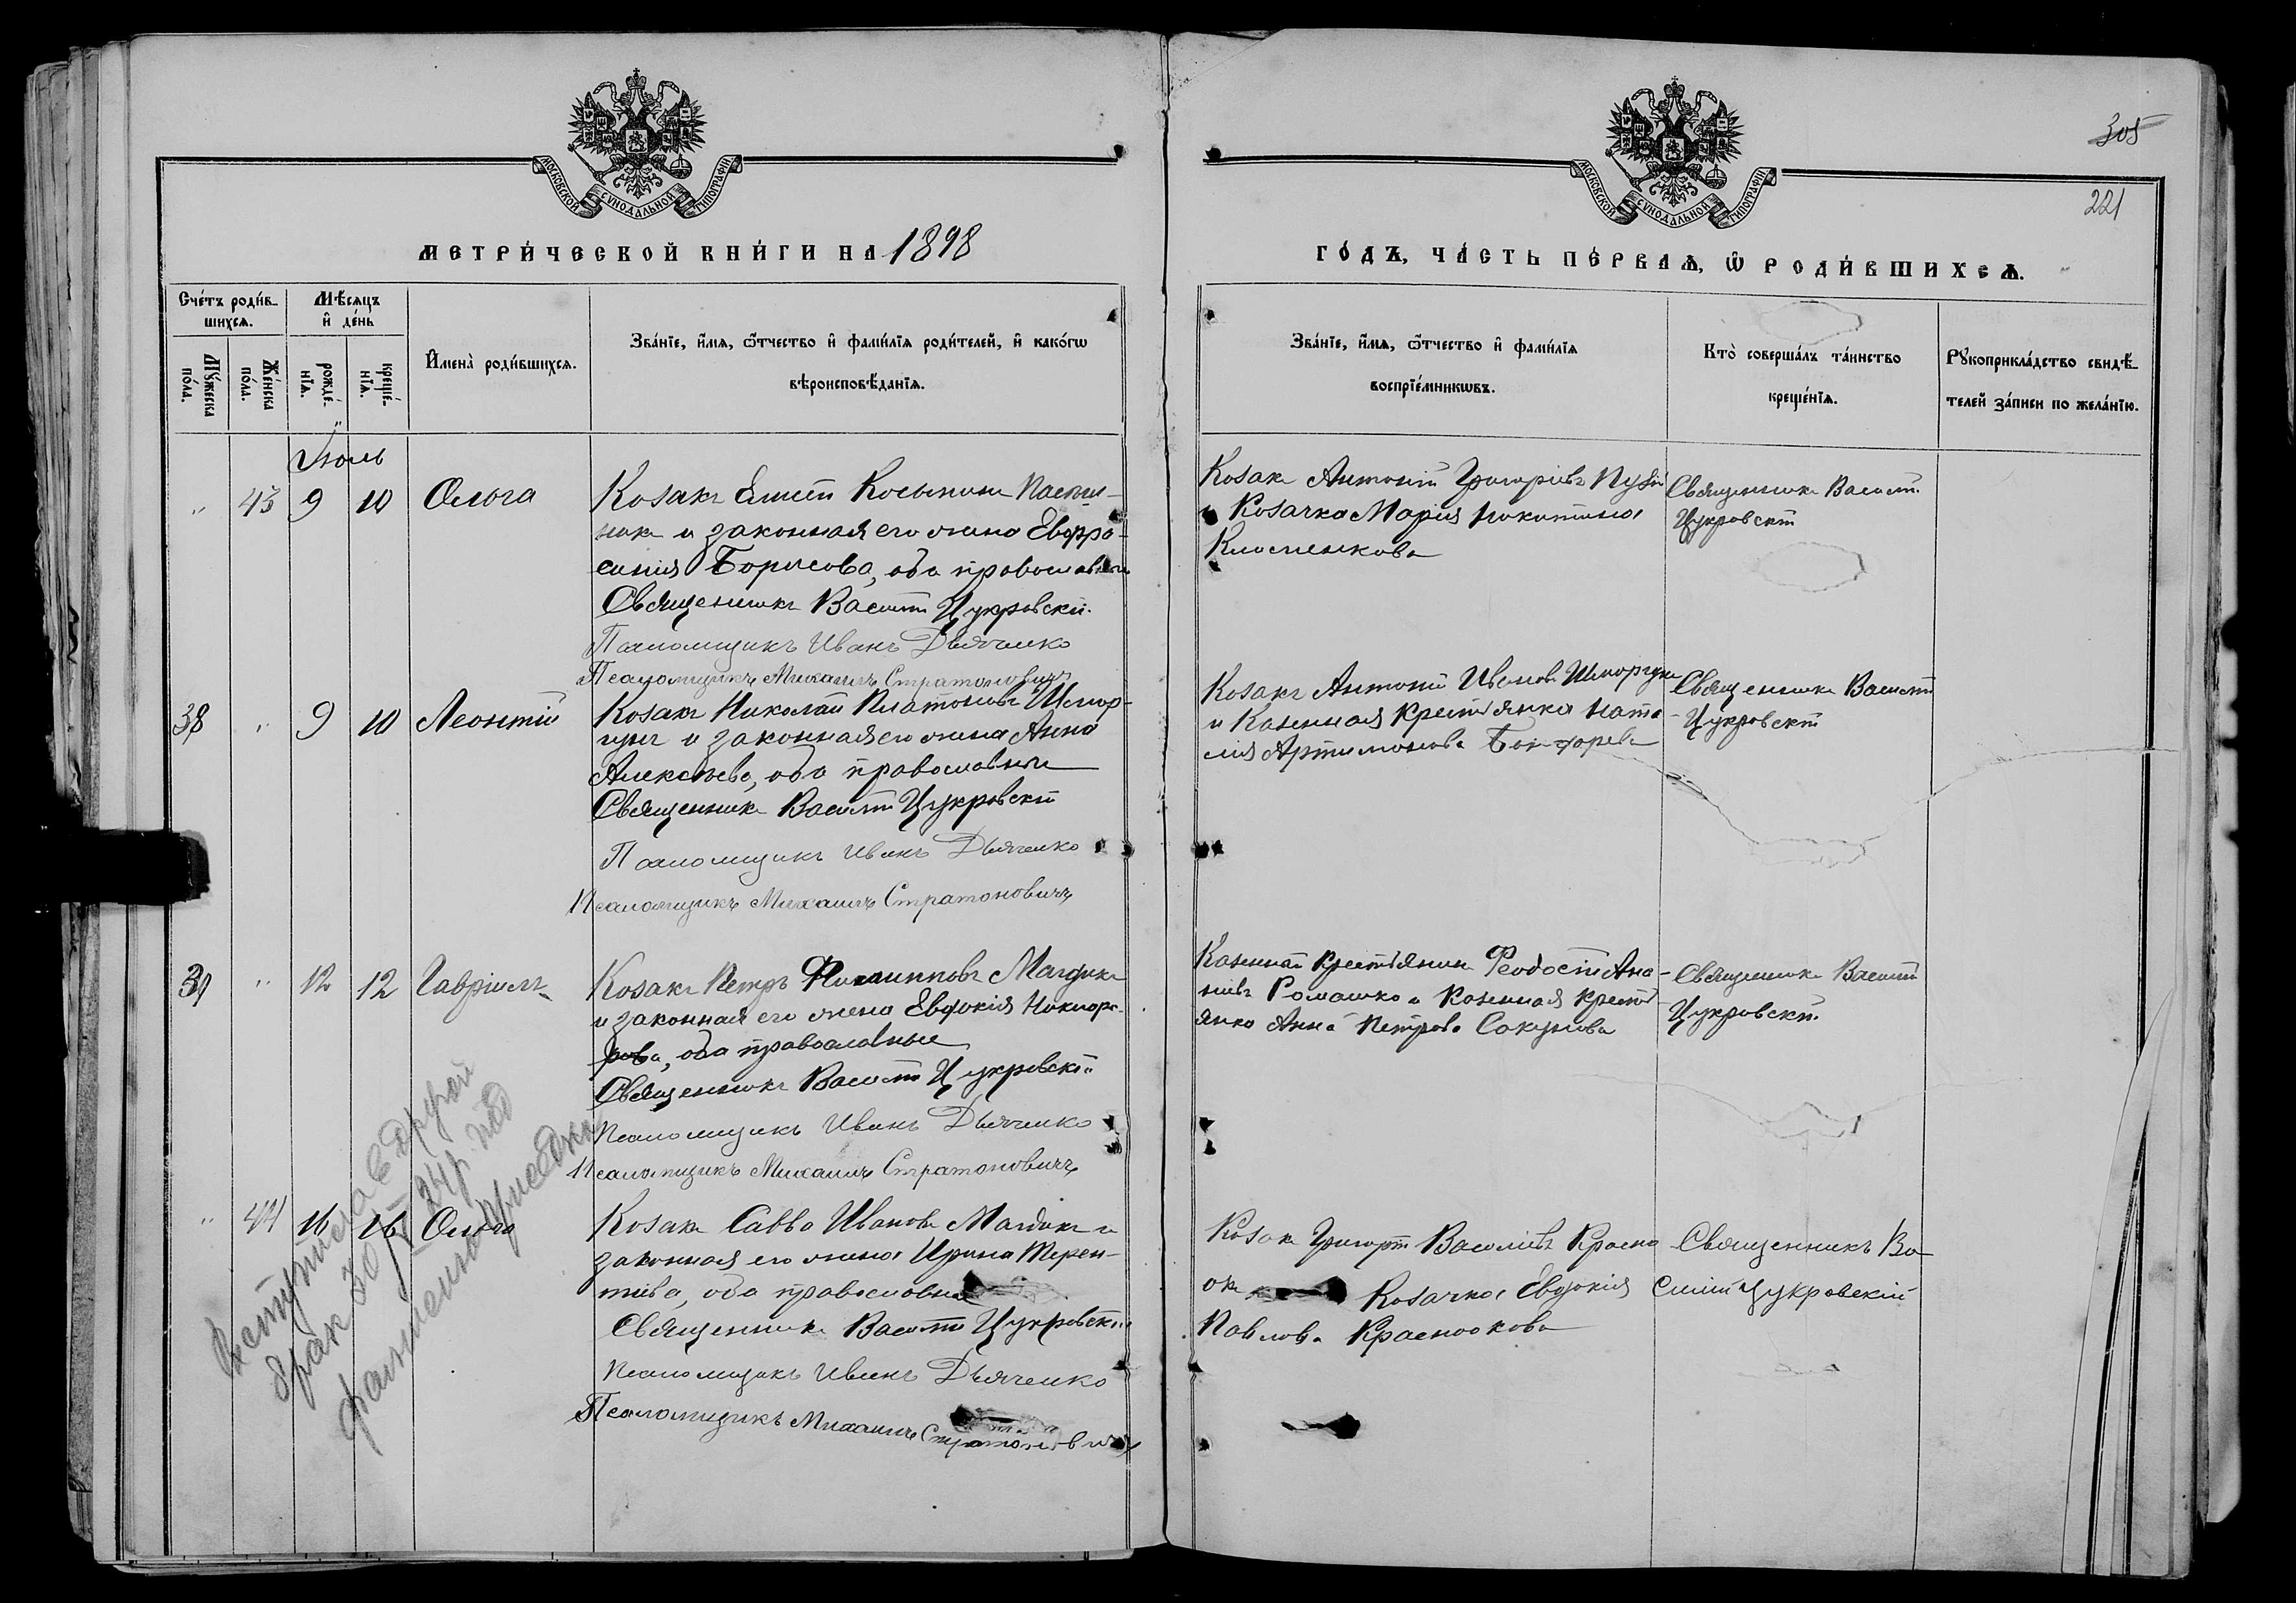 305
221
МОСКОВСКОЙ СѴНОДАЛЬНОЙ ТИПОГРАФІИ
МОСКОВСКОЙ СѴНОДАЛЬНОЙ ТИПОГРАФІИ
МЕТРИ́ЧЕСКОЙ КНИ́ГИ НА 1898
ГО́ДЪ, ЧА́СТЬ ПЕ́РВАѦ, Ѿ РОДИ́ВШИХСѦ.
Счéтъ роди́в-
шихсѧ.
Мѣ́сѧцъ
и҆ де́нь
Мꙋ́жеска
по́ла.
Же́нска
по́ла.
рожде́-
нїѧ.
креще́-
нїѧ.
И҆мена̀ роди́вшихсѧ.
Зва́нїе, и҆́мѧ, ѻ҆́тчество и҆ фами́лїѧ роди́телей, и҆ како́гѡ
вѣроисповѣ́данїѧ.
Зва́нїе, и҆́мѧ, ѻ҆́тчество и҆ фами́лїѧ
воспрїе́мникѡвъ.
Кто̀ соверша́лъ та́инство
креще́нїѧ.
Рꙋкоприкла́дство свидѣ́-
телей за́писи по жела́нїю.
Іюль
" 43 9 10 Ольга
Козакъ Косьминъ
и законная его жена Евфро-
синія Борисова, оба православные
Священникъ Василій Цукровскій
Псаломщикъ Иванъ Дьяченко
Псаломщикъ Михаилъ Стратоновичъ
Козакъ Антоній Григоріевъ
и Козачка Марія
Священникъ Василій
Цукровскій
38 " 9 10 Леонтій
Козакъ Николай Платоновъ Шмор-
гунъ и законная его жена Анна
Алексѣева, оба православные
Священникъ Василій Цукровскій
Псаломщикъ Иванъ Дьяченко
Псаломщикъ Михаилъ Стратоновичъ
Козакъ Антоній Ивановъ Шморгунъ
и Казенная крестьянка Ната-
лія Артимонова
Священникъ Василій
Цукровскій
39 " 12 12 Гавріилъ
Козакъ Петръ Филипповъ Магдикъ
и законная его жена Евдокія Никифо-
рова, оба православные
Священникъ Василій Цукровскій
Псаломщикъ Иванъ Дьяченко
Псаломщикъ Михаилъ Стратоновичъ
Казенный крестьянинъ Феодосій Ана-
ніевъ Ромашко и Казенная кресть-
янка Анна Петрова Сакунова
Священникъ Василій
Цукровскій
" 44 16 16 Ольга
Козакъ Савва Ивановъ Магдикъ и
законная его жена Ирина Терен-
тіева, оба православные
Священникъ Василій Цукровскій
Псаломщикъ Иванъ Дьяченко
Псаломщикъ Михаилъ Стратоновичъ
Козакъ Григорій Василіевъ Красно-
окъ Козачка Евдокія
Павлова Красноокова
Священникъ Ва-
силій Цукровскій
Вступила в другой
брак 30